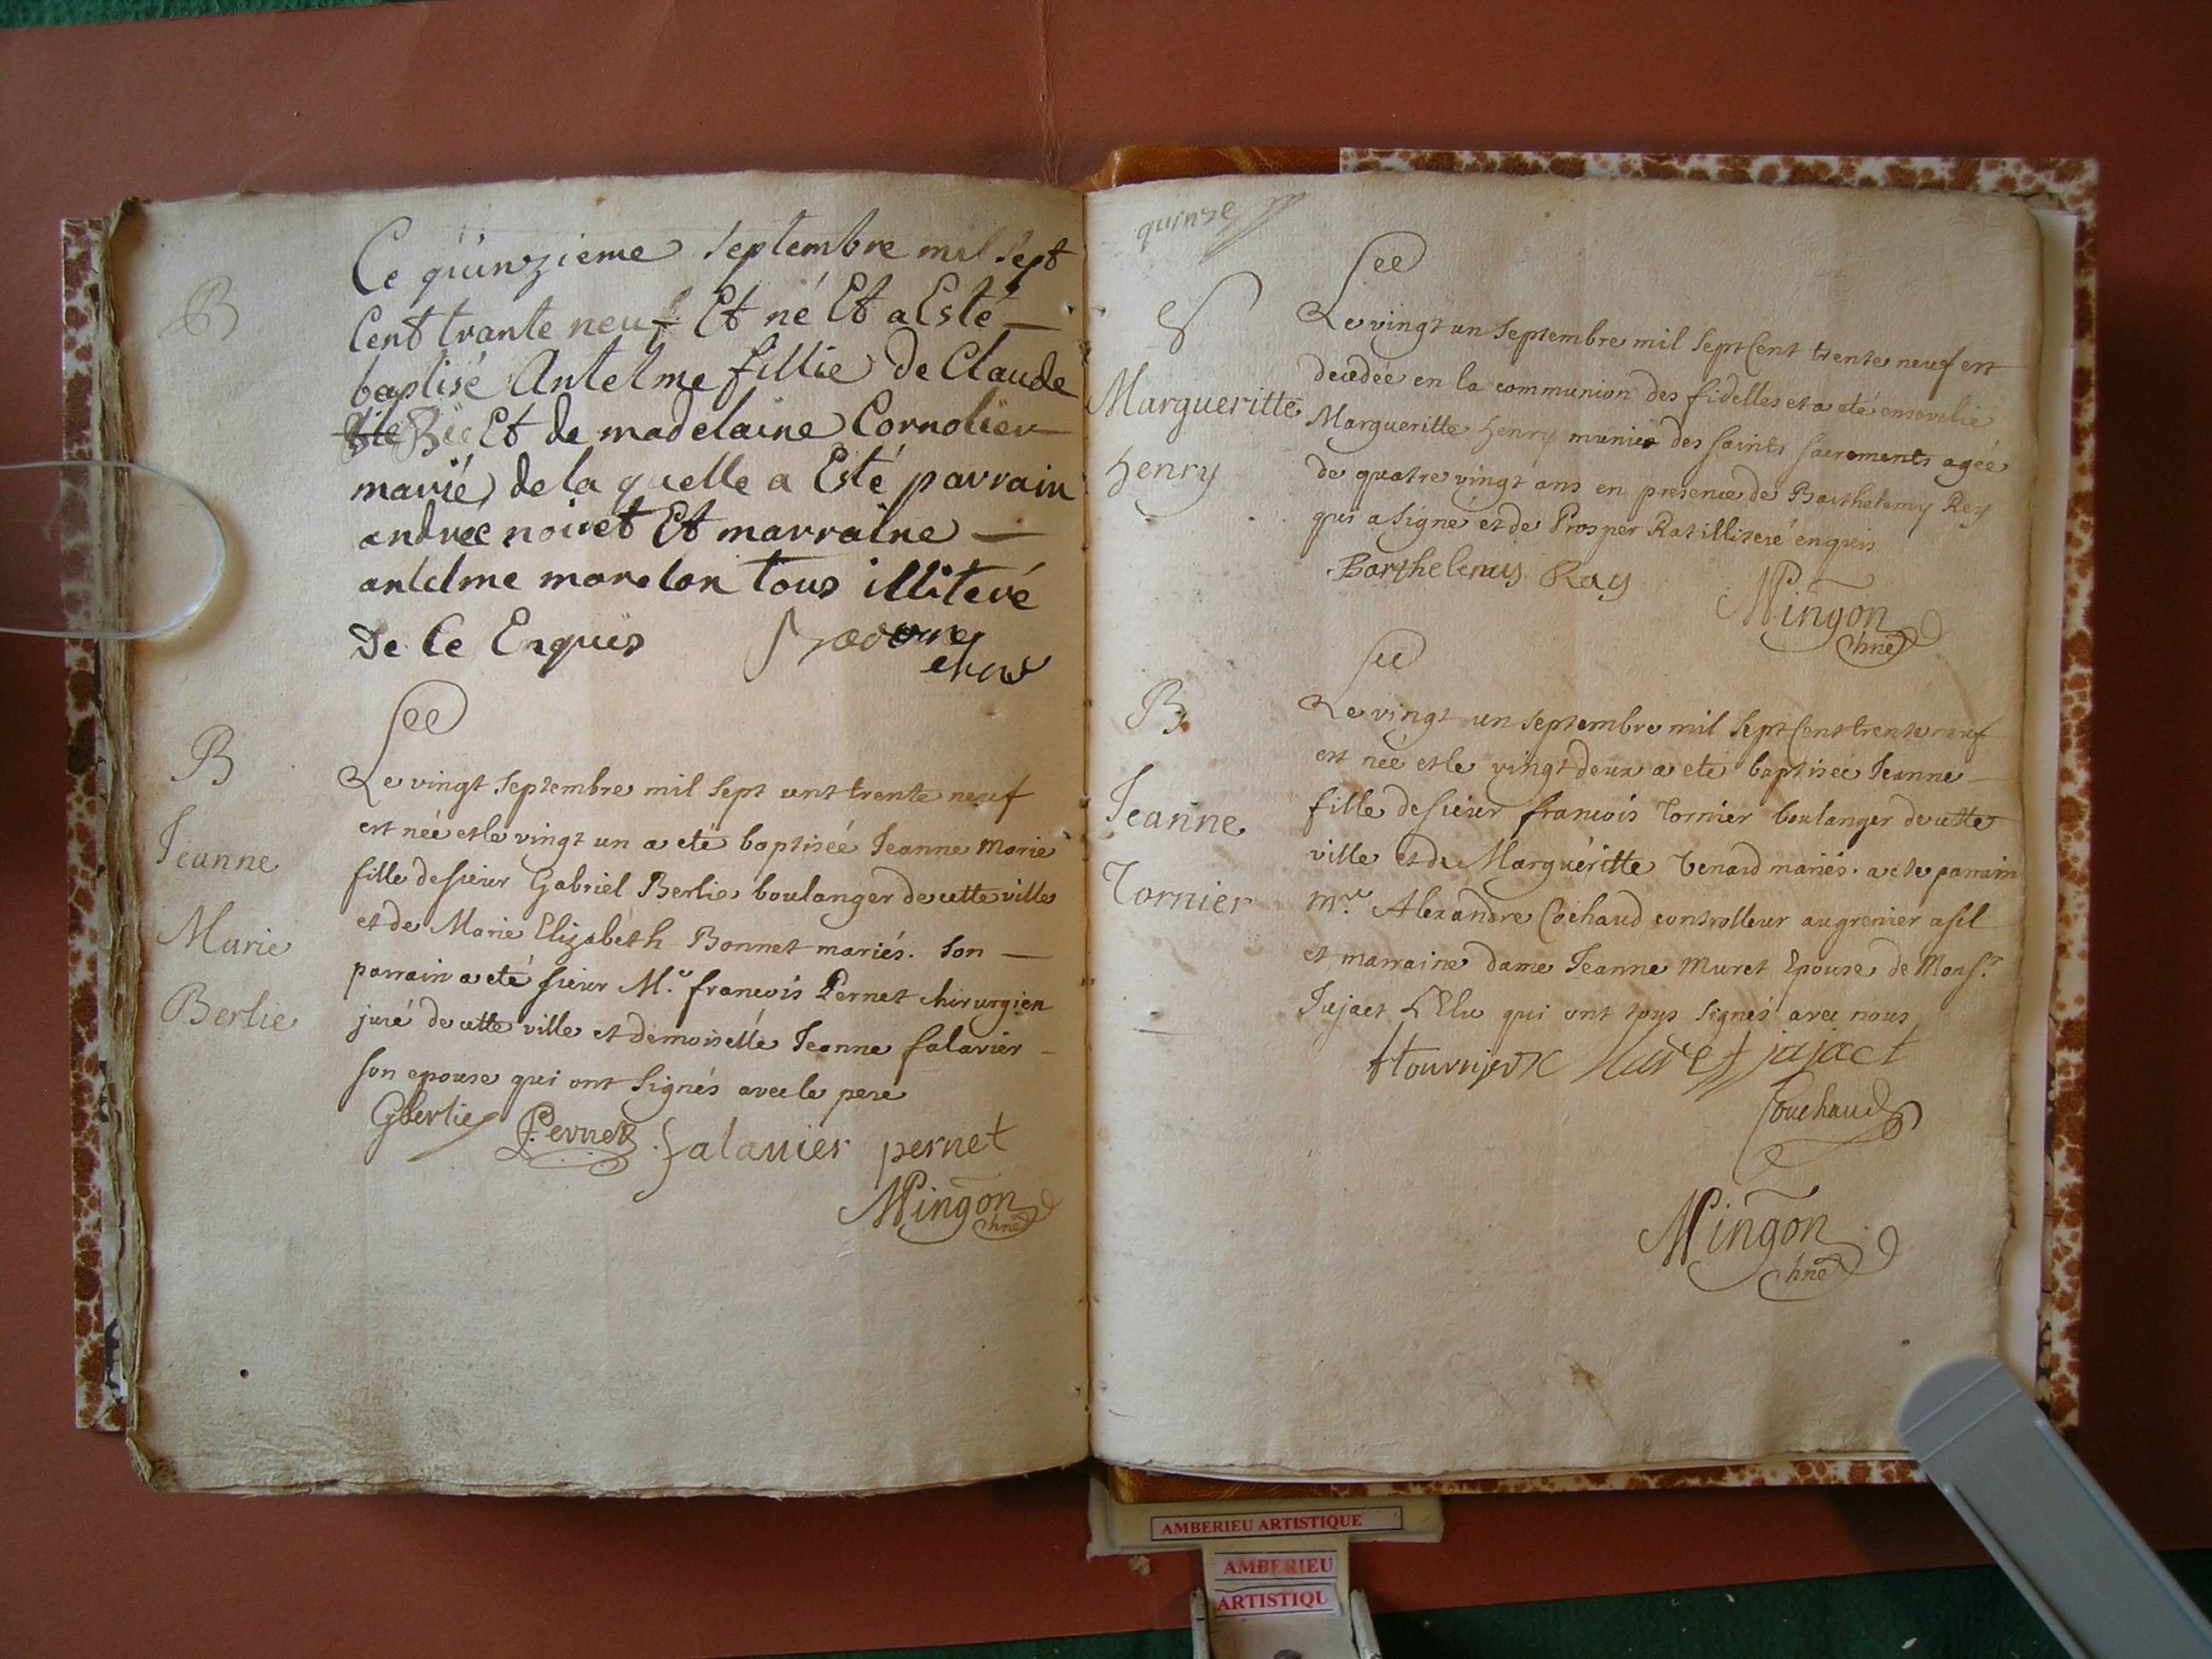 B
Ce quinzieme septembre mil sept
Cent trante neuf Et né Et a Esté
baptisé Antelme fillie de Claude
Bie Et de madelaine Cornolier
marié, de la quelle a Esté parrain
andree noiret Et marraine
antelme morelon tous illiteré
De Ce Enquis
B
Jeanne
Marie
Berlie
Le vingt Septembre mil Sept cent trente neuf
est née et le vingt un a eté baptiseé Jeanne Marie
fille de sieur Gabriel Berlie boulanger de cette ville
et de Marie Elizabeth Bonnet mariés. Son
parrain a eté sieur Mr. francois Pernet chirurgien
juré de cette ville et demoiselle Jeanne falavier
son epouse qui ont Signés avec le pere
GBerlie Pernet falauier pernet
Mingon
chne
quinze
S
Margueritte
henry
Le vingt un Septembre mil Sept Cent trente neuf est
decedeé en la communion des fidelles et a eté ensevelie
Margueritte henry munie des saints sacrements ageé
de quatre vingt ans en presence de Barthelemy Rey
qui a Signé et de Prosper Rat illiteré enquis
Barthelemy Ray
Mingon
chne
B
Jeanne
Tornier
Le vingt un Septembre mil Sept Cent trente neuf
est neé et le vingt deux a eté baptiseé Jeanne
fille de sieur francois Tornier boulanger de cette
ville et de Margueritte Tenard mariés. a ete parrain
Mre Alexandre Cochaud controlleur au grenier a sel
et marraine dame Jeanne Muret Epouse de Monsr.
Jujact L'Elu qui ont tous Signés avec nous
Muret jajact
Couchaud
Mingon
chne
AMBERIEU ARTISTIQUE
AMBERIEU
ARTISTIQU